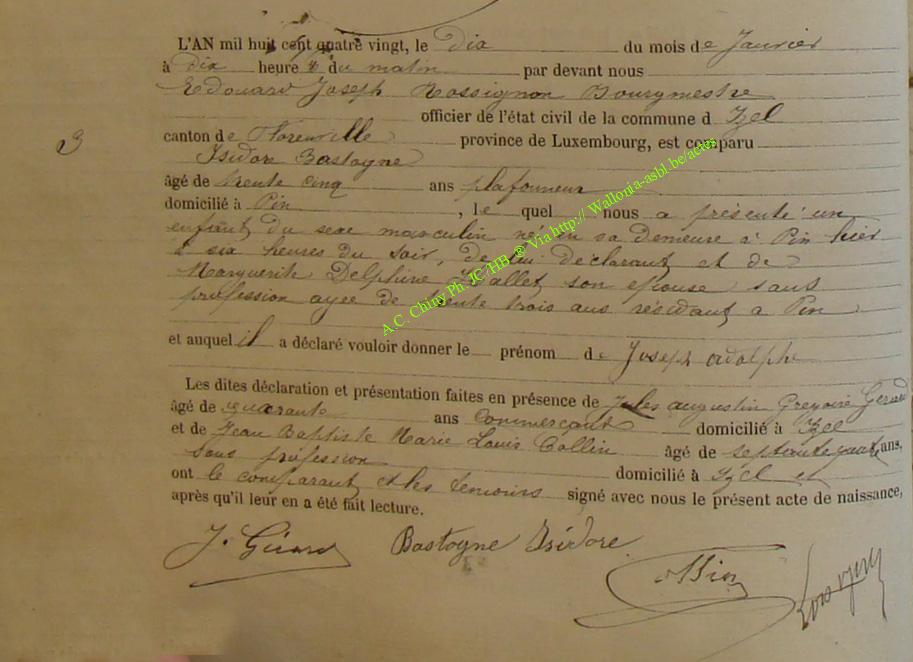 L'AN mil huit cent quatre vingt, le dix du mois de Janvier
à dix heures du matin par devant nous
Edouard Joseph Rossignon Bourgmestre
officier de l'état civil de la commune d Izel
3
canton de Florenville province de Luxembourg, est comparu
Isidore Bastogne
âgé de trente cinq ans plafonneur
domicilié à Pin , le quel nous a présenté un
enfant du sexe masculin né en sa demeure à Pin hier
à six heures du soir, de lui déclarant et de
Marguerite Delphine Wallet son épouse sans
profession agée de trente trois ans résidant à Pin
et auquel il a déclaré vouloir donner le prénom de Joseph adolphe
Les dites déclaration et présentation faites en présence de Jules augustin Gregoire Gerard
âgé de quarante ans commerçant domicilié à Izel
et de Jean Baptiste Marie Louis Collin âgé de septante quatre ans,
sans profession domicilié à Izel et
ont le comparant et les temoins signé avec nous le présent acte de naissance,
après qu'il leur en a été fait lecture.
J. Gérard Bastogne Isidore
A.C. Chiny Ph. JC/HB ® Via http:// Wallonia-asbl.be/actes